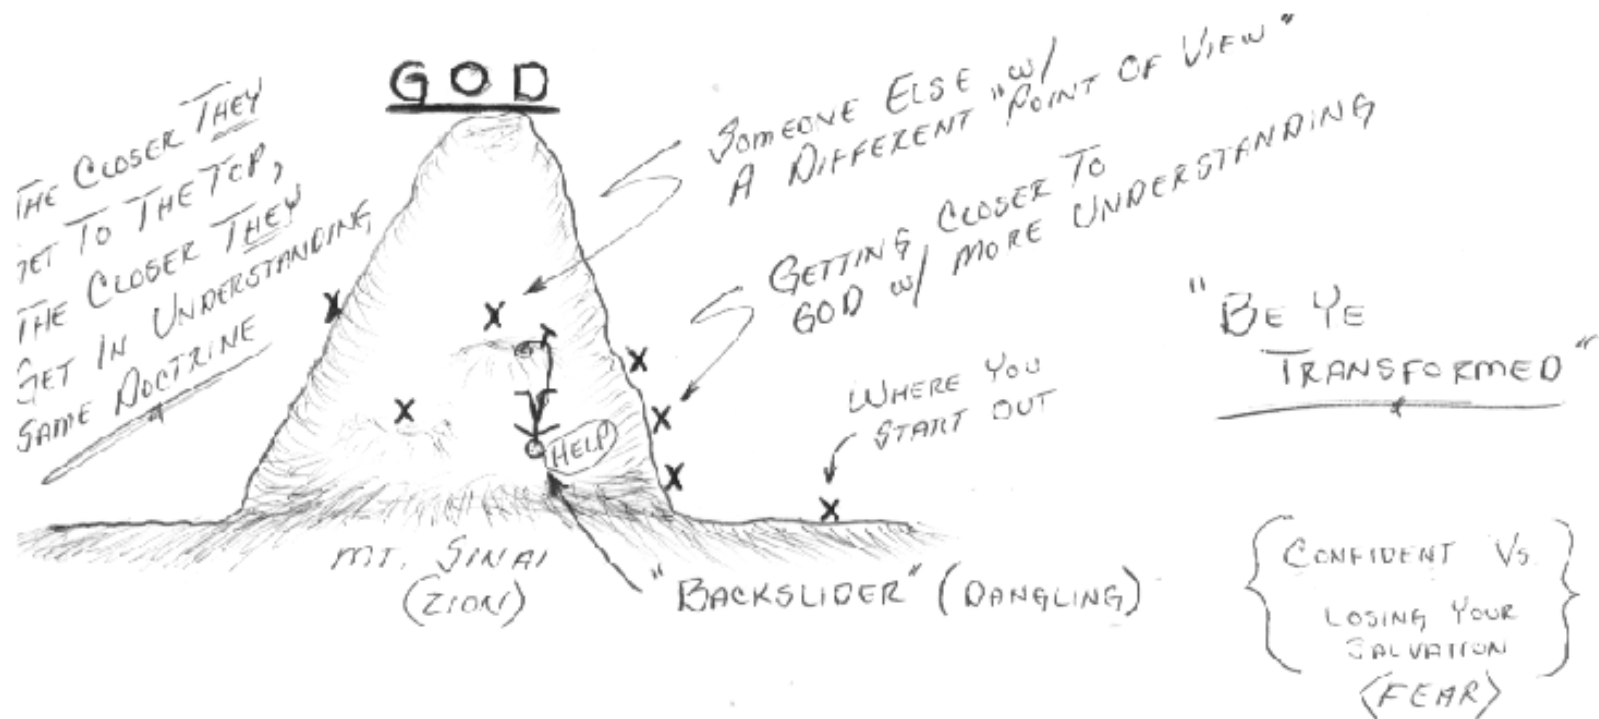 GOD
THE CLOSER THEY
GET TO THE TOP,
THE CLOSER THEY
GET IN UNDERSTANDING,
SAME DOCTRINE
SOMEONE ELSE w/
A DIFFERENT "POINT OF VIEW"
GETTING CLOSER TO
GOD w/ MORE UNDERSTANDING
"BE YE
TRANSFORMED"
WHERE YOU
START OUT
X
X
X
X
X
X
X
HELP
MT. SINAI
(ZION)
"BACKSLIDER" (DANGLING)
{CONFIDENT VS
LOSING YOUR
SALVATION}
(FEAR)